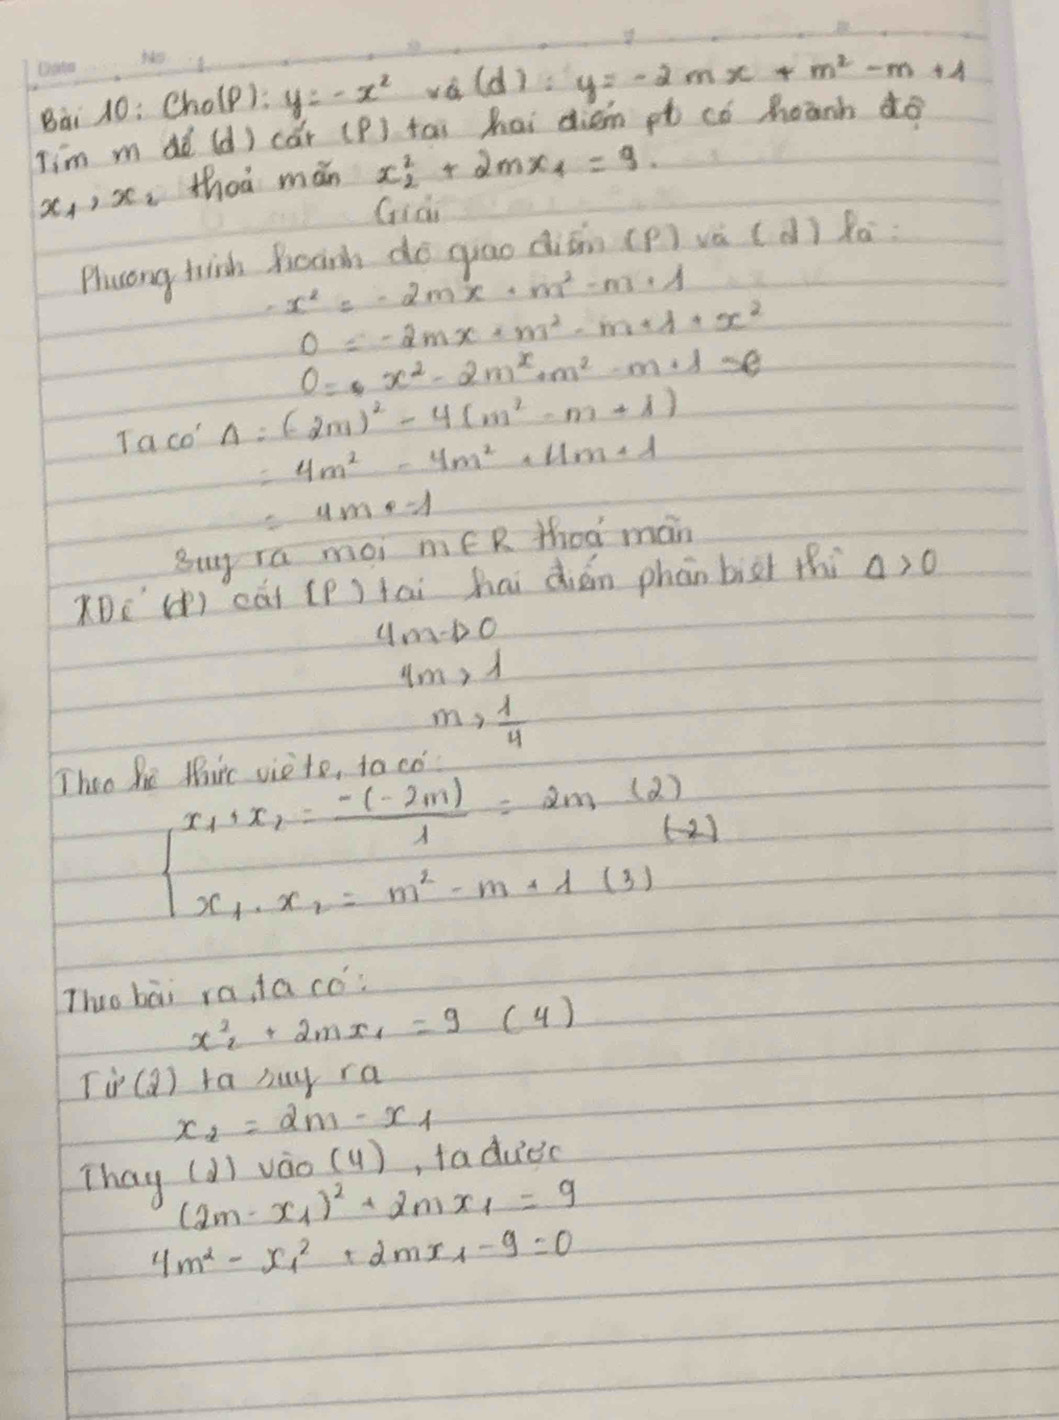 Date No
Bài 10: Cho(P): y = -x² và (d): y = -2mx + m² - m + 1
Tìm m để (d) cắt (P) tại hai điểm pb có hoành độ
x₁, x₂ thoả mãn x₂² + 2mx₁ = 9.
Giải
Phương trình hoành độ giao điểm (P) và (d) là:
-x² = -2mx + m² - m + 1
0 = -2mx + m² - m + 1 + x²
0 = x² - 2mx + m² - m + 1
Ta có Δ = (-2m)² - 4(m² - m + 1)
= 4m² - 4m² + 4m + 1
= 4m - 1
Suy ra mọi m ∈ R thoả mãn
Để (d) cắt (P) tại hai điểm phân biệt thì Δ > 0
4m - 1 > 0
4m > 1
m > 1/4
Theo hệ thức viète, ta có:
x₁ + x₂ = -(-2m)/1 = 2m (2)
(2)
x₁ . x₂ = m² - m + 1 (3)
Theo bài ra, ta có:
x₂² + 2mx₁ = 9 (4)
Từ (2) ta suy ra
x₂ = 2m - x₁
Thay (2) vào (4), ta được
(2m - x₁)² + 2mx₁ = 9
4m² - x₁² + 2mx₁ - 9 = 0